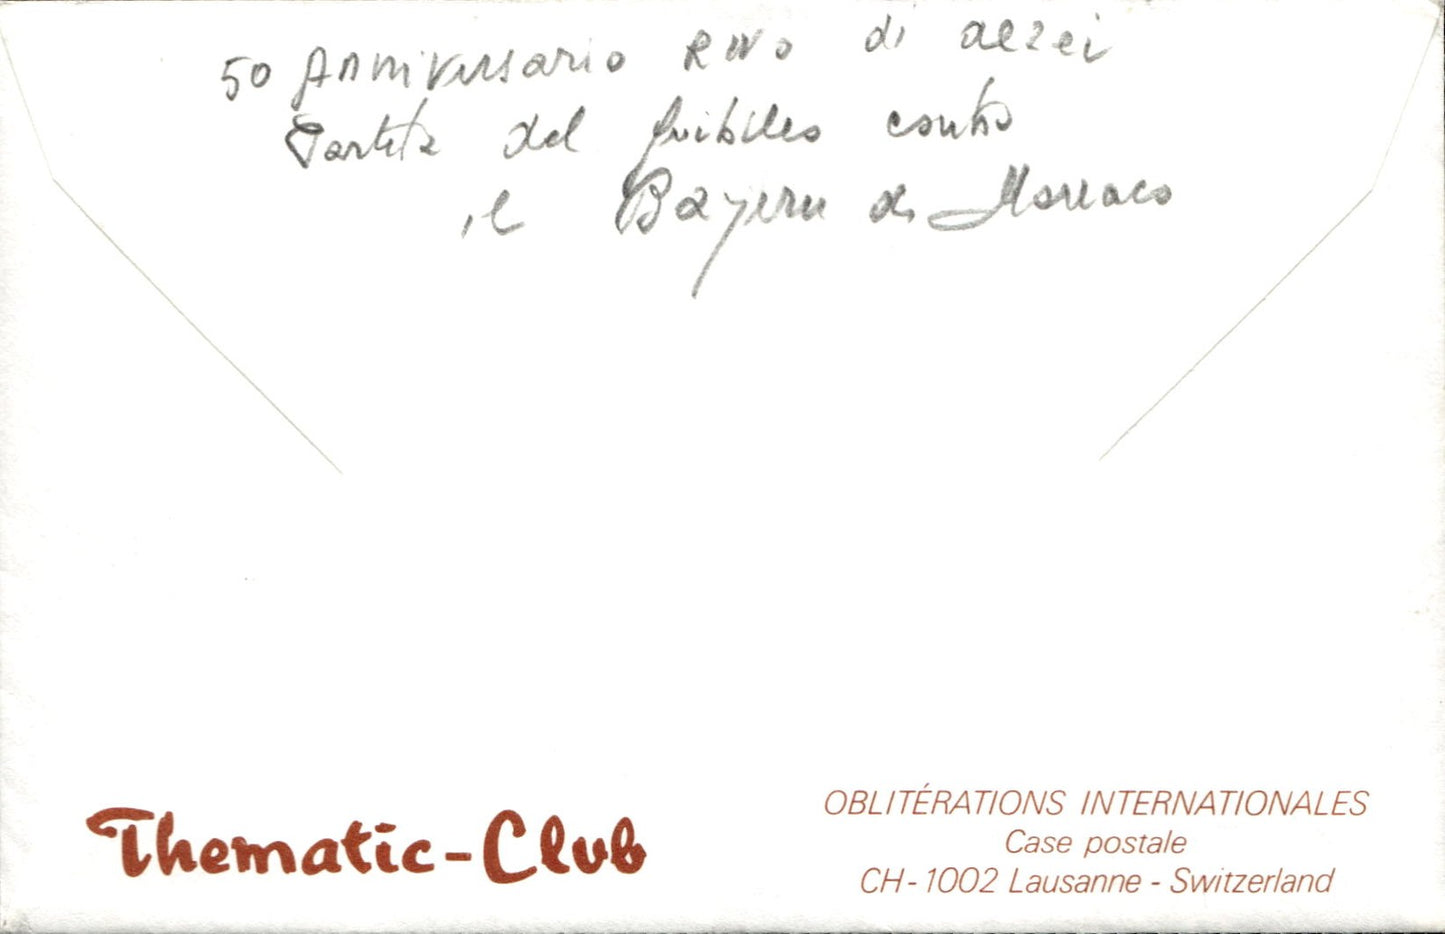 50 Anniversario RWO di Alzei
Partita del giubileo contro
il Bayern di Monaco
Thematic-Club
OBLITÉRATIONS INTERNATIONALES
Case postale
CH-1002 Lausanne - Switzerland